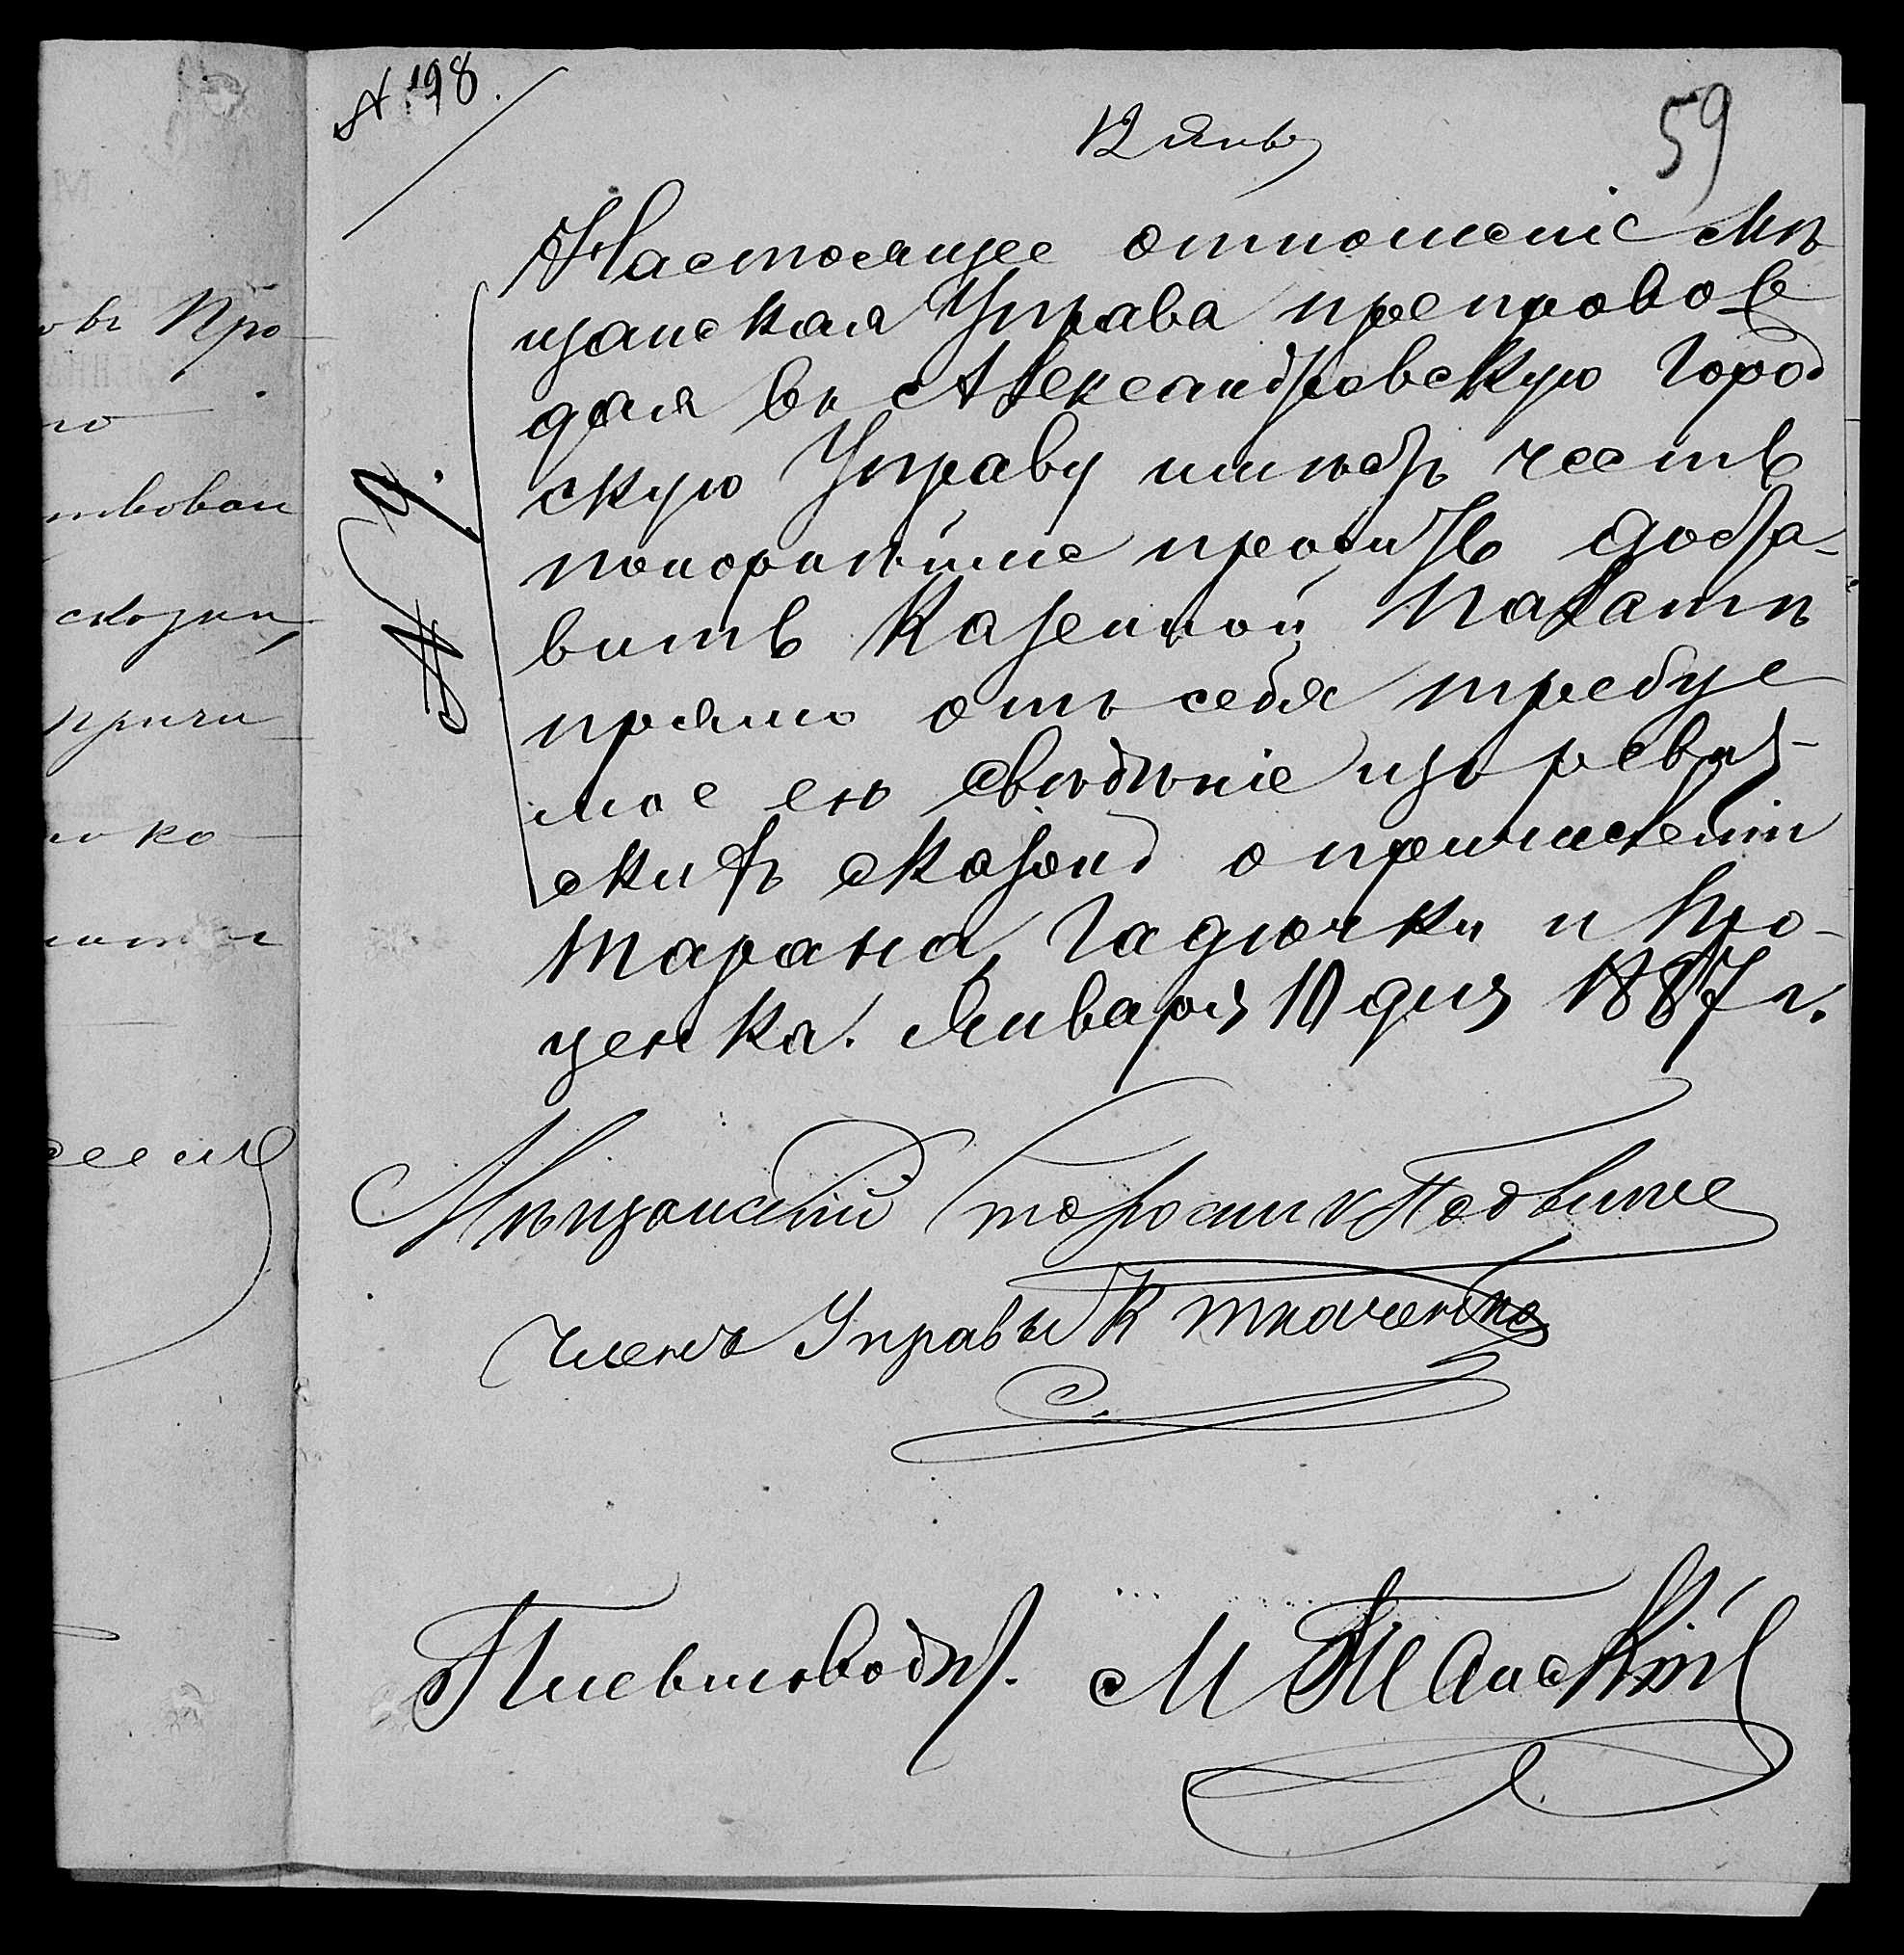 № 198.
12 Янв
59
Настоящее отношеніе Мѣ
щанская Управа препровож
дая въ Александровскую Город
скую Управу имѣетъ честь
покорнѣйше проситъ доста-
вить Казенной Палатѣ
прямо отъ себя требуе
мое ею свѣдѣніе изъ ревиз-
скихъ сказокъ о причисленіи
Тарана, Гадючки и Про-
ценка. Января 10 дня 1887 г.
№ 9.
Мѣщанскій Староста
Членъ Управы К Ткаченко
Письмоводит. М
овъ Про
но
ствован
сказки,
причи
ко